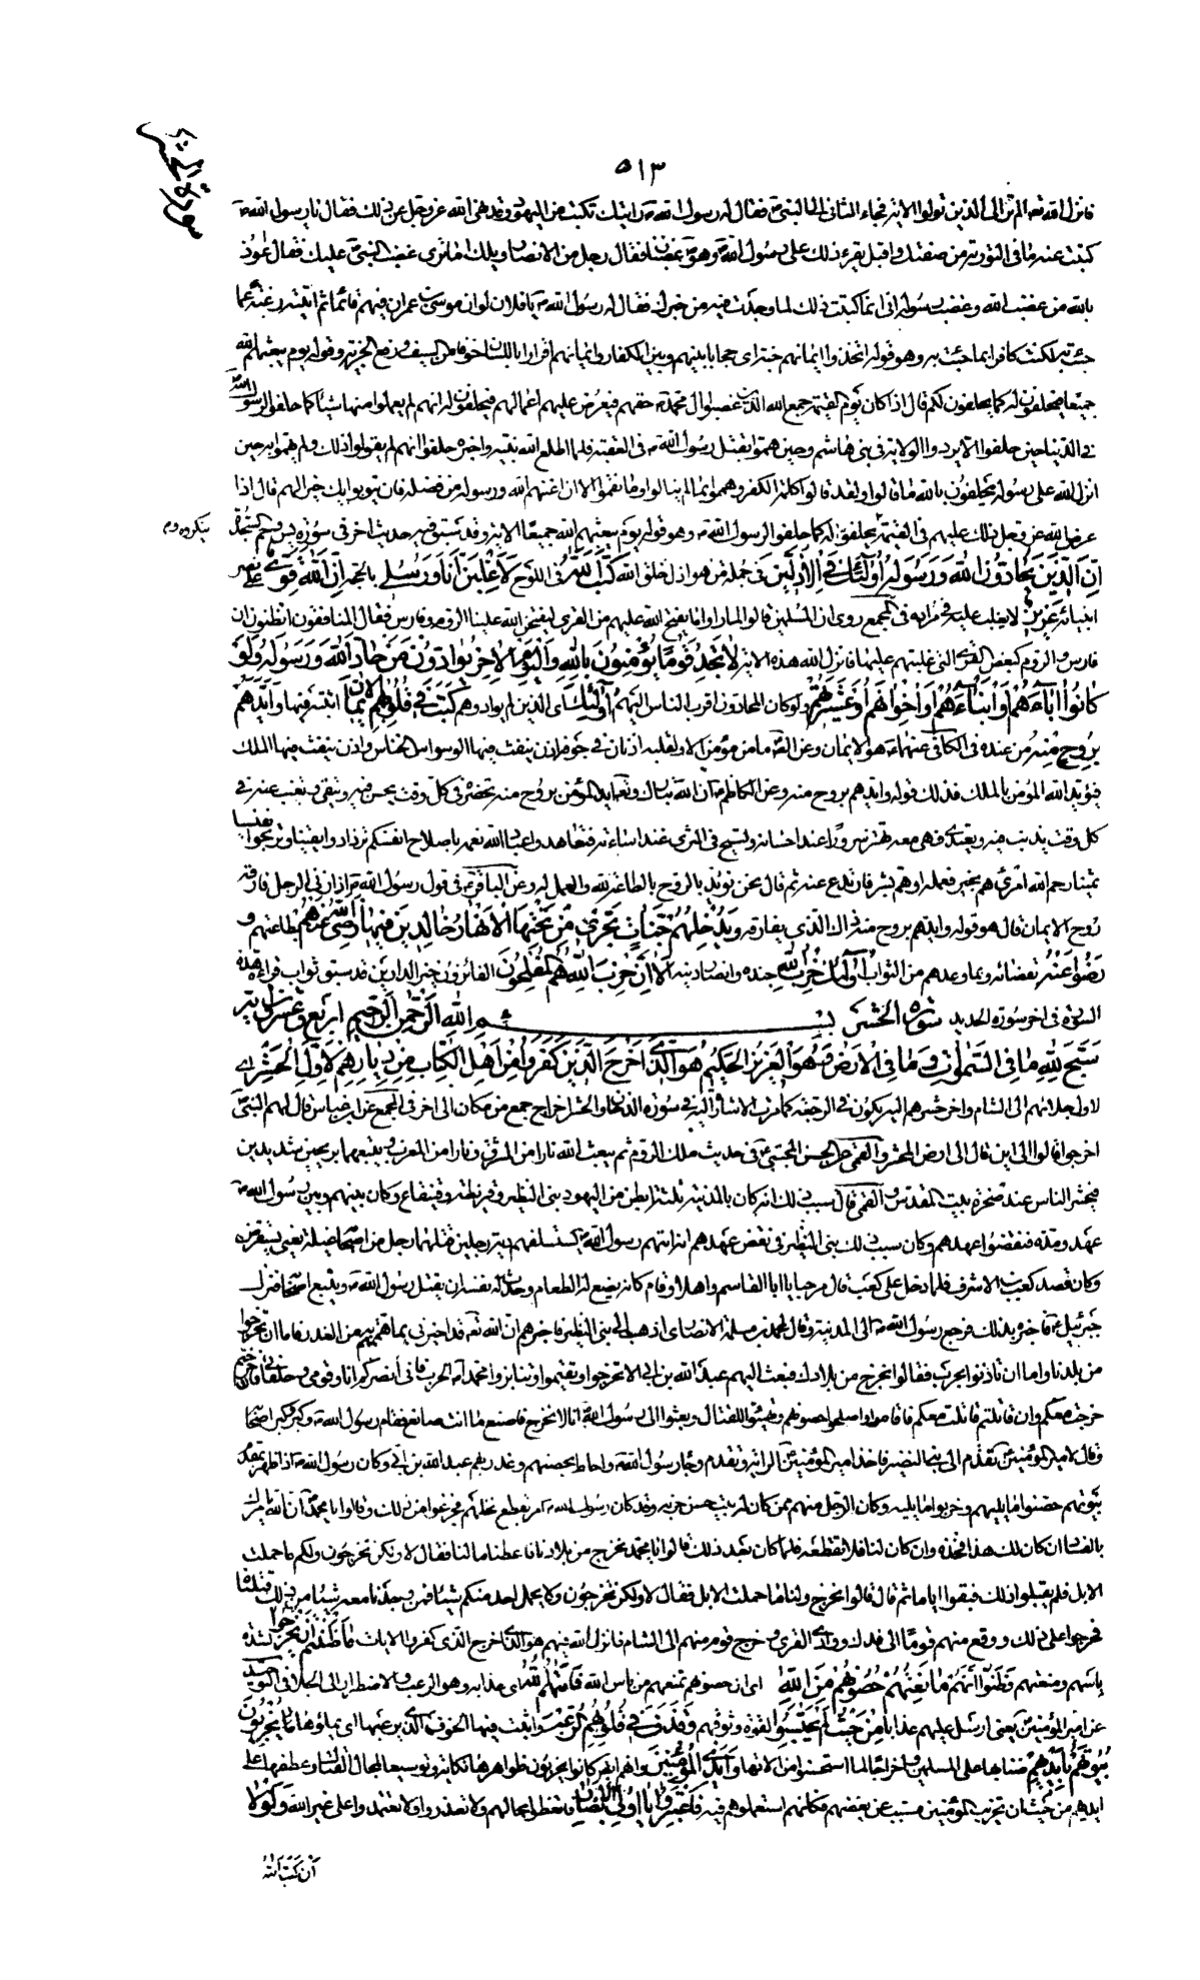 سورة الحشر
٥١٣
فانزل الله تعـ الم تر الى الذين تولوا الاية فجاء الثانى الى النبى صـ فقال له رسول الله صـ رايتك تكتب عن اليهود وقد نهى الله عز وجل عن ذلك فقال يا رسول الله صـ
كتبت عنه ما فى التورية من صفتك واقبل يقرء ذلك على رسول الله صـ وهو غضبان فقال رجل من الانصار ويلك اما ترى غضب النبى صـ عليك فقال اعوذ
بالله من غضب الله وغضب رسوله انى انما كتبت ذلك لما وجدت فيه من خبرك فقال له رسول الله صـ يا فلان لو ان موسى بن عمران فيهم قائما ثم اتيته رغبة عما
جئت به لكنت كافرا بما جئت به وهو قوله اتخذوا ايمانهم جنة اى حجابا بينهم وبين الكفار وايمانهم اقرارا باللسان خوفا من السيف ورفع الجزية وقوله يوم يبعثهم الله
جميعا فيحلفون له كما يحلفون لكم قال اذا كان يوم القيمة جمع الله الذين غصبوا ال محمد صـ حقهم فيعرض عليهم اعمالهم فيحلفون له انهم لم يعملوا منها شيئا كما حلفوا لرسول الله صـ
فى الدنيا حين حلفوا الا يردوا الولاية فى بنى هاشم وحين هموا بقتل رسول الله صـ فى العقبة فلما اطلع الله نبيه واخبره حلفوا انهم لم يقولوا ذلك ولم يهموا به حين
انزل الله على رسوله يحلفون بالله ما قالوا ولقد قالوا كلمة الكفر وهموا بما لم ينالوا وما نقموا الا ان اغنهم الله ورسوله من فضله فان يتوبوا يك خيرا لهم قال اذا
عرض الله عز وجل ذلك عليهم فى القيمة يحلفون له كما حلفوا لرسول الله صـ وهو قوله يوم يبعثهم الله جميعا الاية وقد سبق فيه حديث اخر فى سورة يس وحم السجدة
ان الذين يحادون الله ورسوله اولئك فى الاذلين فى جملة من هو اذل خلق الله كتب الله فى اللوح لاغلبن انا ورسلى بالحجة ان الله قوى على نصر
انبيائه عزيز لا يغلب عليه فى مراده فى المجمع روى ان المسلمين قالوا لما راوا ما يفتح الله عليهم من القرى ليفتحن الله علينا الروم وفارس فقال المنافقون اتظنون ان
فارس والروم كبعض القرى التى غلبتم عليها فانزل الله هذه الاية لا تجد قوما يؤمنون بالله واليوم الاخر يوادون من حاد الله ورسوله ولو
كانوا اباءهم او ابناءهم او اخوانهم او عشيرتهم ولو كان المحادون اقرب الناس اليهم اولئك اى الذين لم يوادوهم كتب فى قلوبهم الايمان اثبته فيها وايدهم
بروح منه من عنده فى الكافى عنهما عـ هو الايمان وعن الصادق عـ ما من مؤمن الا ولقلبه اذنان فى جوفه اذن ينفث فيها الوسواس الخناس واذن ينفث فيها الملك
فيؤيد الله المؤمن بالملك فذلك قوله وايدهم بروح منه وعن الكاظم عـ ان الله تبارك وتعـ ايد المؤمن بروح منه تحضره فى كل وقت يحسن فيه ويتقى وتغيب عنه فى
كل وقت يذنب فيه ويعتدى فهى معه تهتز سرورا عند احسانه وتسيخ فى الثرى عند اساءته فتعاهدوا عباد الله نعمه باصلاح انفسكم تزدادوا يقينا وتربحوا نفيسا
ثمينا رحم الله امرئ هم بخير فعمله او هم بشر فارتدع عنه ثم قال نحن نؤيد بالروح بالطاعة لله والعمل له وعن الباقر عـ فى قول رسول الله صـ اذا زنى الرجل فارقه
روح الايمان قال هو قوله وايدهم بروح منه ذاك الذى يفارقه ويدخلهم جنات تجرى من تحتها الانهار خالدين فيها رضى الله عنهم بطاعتهم و
رضوا عنه بقضائه وبما وعدهم من الثواب اولئك حزب الله جنده وانصار دينه الا ان حزب الله هم المفلحون الفائزون بخير الدارين قد سبق ثواب قراءة هذه
السورة فى اخر سورة الحديد سورة الحشر بسم الله الرحمن الرحيم اربع وعشرون اية
سبح لله ما فى السموات وما فى الارض وهو العزيز الحكيم هو الذى اخرج الذين كفروا من اهل الكتاب من ديارهم لاول الحشر اى
لاول جلائهم الى الشام واخر حشرهم اليه يكون فى الرجعة كما مرت الاشارة اليه فى سورة الدخان والحشر اخراج جمع من مكان الى اخر فى المجمع عن ابن عباس قال لهم النبى صـ
اخرجوا قالوا الى اين قال الى ارض المحشر والقمى عن الحسن المجتبى عـ فى حديث ملك الروم ثم يبعث الله نارا من المشرق ونارا من المغرب ويتبعهما بريحين شديدين
فيحشر الناس عند صخرة بيت المقدس والقمى قال سبب ذلك انه كان بالمدينة ثلثة ابطن من اليهود بنى النظير وقريظة وقينقاع وكان بينهم وبين رسول الله صـ
عهد ومدة فنقضوا عهدهم وكان سبب ذلك بنى النظير فى نقض عهدهم انه اتاهم رسول الله صـ يستسلفهم دية رجلين قتلهما رجل من اصحابه غيلة يعنى يستقرض
وكان قصد كعب بن الاشرف فلما دخل على كعب قال مرحبا يا ابا القاسم واهلا وقام كانه يضع له الطعام وحدث نفسه ان يقتل رسول الله صـ ويتبع اصحابه فنزل
جبرئيل عـ فاخبره بذلك فرجع رسول الله صـ الى المدينة وقال لمحمد بن مسلمة الانصارى اذهب الى بنى النظير فاخبرهم ان الله تعـ قد اخبرنى بما هممتم به من الغدر فاما ان تخرجوا
من بلدنا واما ان تاذنوا بحرب فقالوا نخرج من بلادك فبعث اليهم عبد الله بن ابى الا تخرجوا وتقيموا وتنابزوا محمدا صـ الحرب فانى انصركم انا وقومى وحلفائى فان خرجتم
خرجت معكم وان قاتلتم قاتلت معكم فاقاموا واصلحوا حصونهم وتهيئوا للقتال وبعثوا الى رسول الله صـ انا لا نخرج فاصنع ما انت صانع فقام رسول الله صـ وكبر وكبر اصحابه
وقال لامير المؤمنين عـ تقدم الى بنى النضير فاخذ امير المؤمنين عـ الراية وتقدم وجاء رسول الله صـ واحاط بحصنهم وغدر بهم عبد الله بن ابى وكان رسول الله صـ اذا ظهر بمقدم
بيوتهم حصنوا ما يليهم وخربوا ما يليه وكان الرجل منهم ممن كان له بيت حسن خربه وقد كان رسول الله صـ امر بقطع نخلهم فجزعوا من ذلك وقالوا يا محمد صـ ان الله يامرك
بالفساد ان كان لك هذا فخذه وان كان لنا فلا تقطعه فلما كان بعد ذلك قالوا يا محمد نخرج من بلادنا فاعطنا مالنا فقال لا ولكن تخرجون ولكم ما حملت
الابل فلم يقبلوا ذلك فبقوا اياما ثم قال قالوا نخرج ولنا ما حملت الابل فقال لا ولكن تخرجون ولا يحمل احد منكم شيئا فمن وجدنا معه شيئا من ذلك قتلناه
فخرجوا على ذلك ووقع منهم قوم الى فدك ووادى القرى وخرج قوم منهم الى الشام فانزل الله فيهم هو الذى اخرج الذى كفروا الايات ما ظننتم ان يخرجوا لشدة
باسهم ومنعتهم وظنوا انهم ما نعتهم حصونهم من الله اى ان حصونهم تمنعهم من باس الله فاتيهم الله اى عذابه وهو الرعب والاضطرار الى الجلاء فى التوحيد
عن امير المؤمنين عـ يعنى ارسل عليهم عذابا من حيث لم يحتسبوا لقوة وثوقهم وقذف فى قلوبهم الرعب واثبت فيها الخوف الذى يرعبها اى يملؤها يخربون
بيوتهم بايديهم ضنا بها على المسلمين واخراجا لما استحسنوا من الاتها وايدى المؤمنين فانهم ايضا كانوا يخربون ظواهرها نكاية وتوسيعا لمجال القتال وعطفها على
ايديهم من حيث ان تخريب المؤمنين مسبب عن بغضهم فكانهم استعملوهم فيه فاعتبروا يا اولى الابصار فاتعظوا بحالهم ولا تغدروا ولا تعتمدوا على غير الله ولولا
ان كتب الله